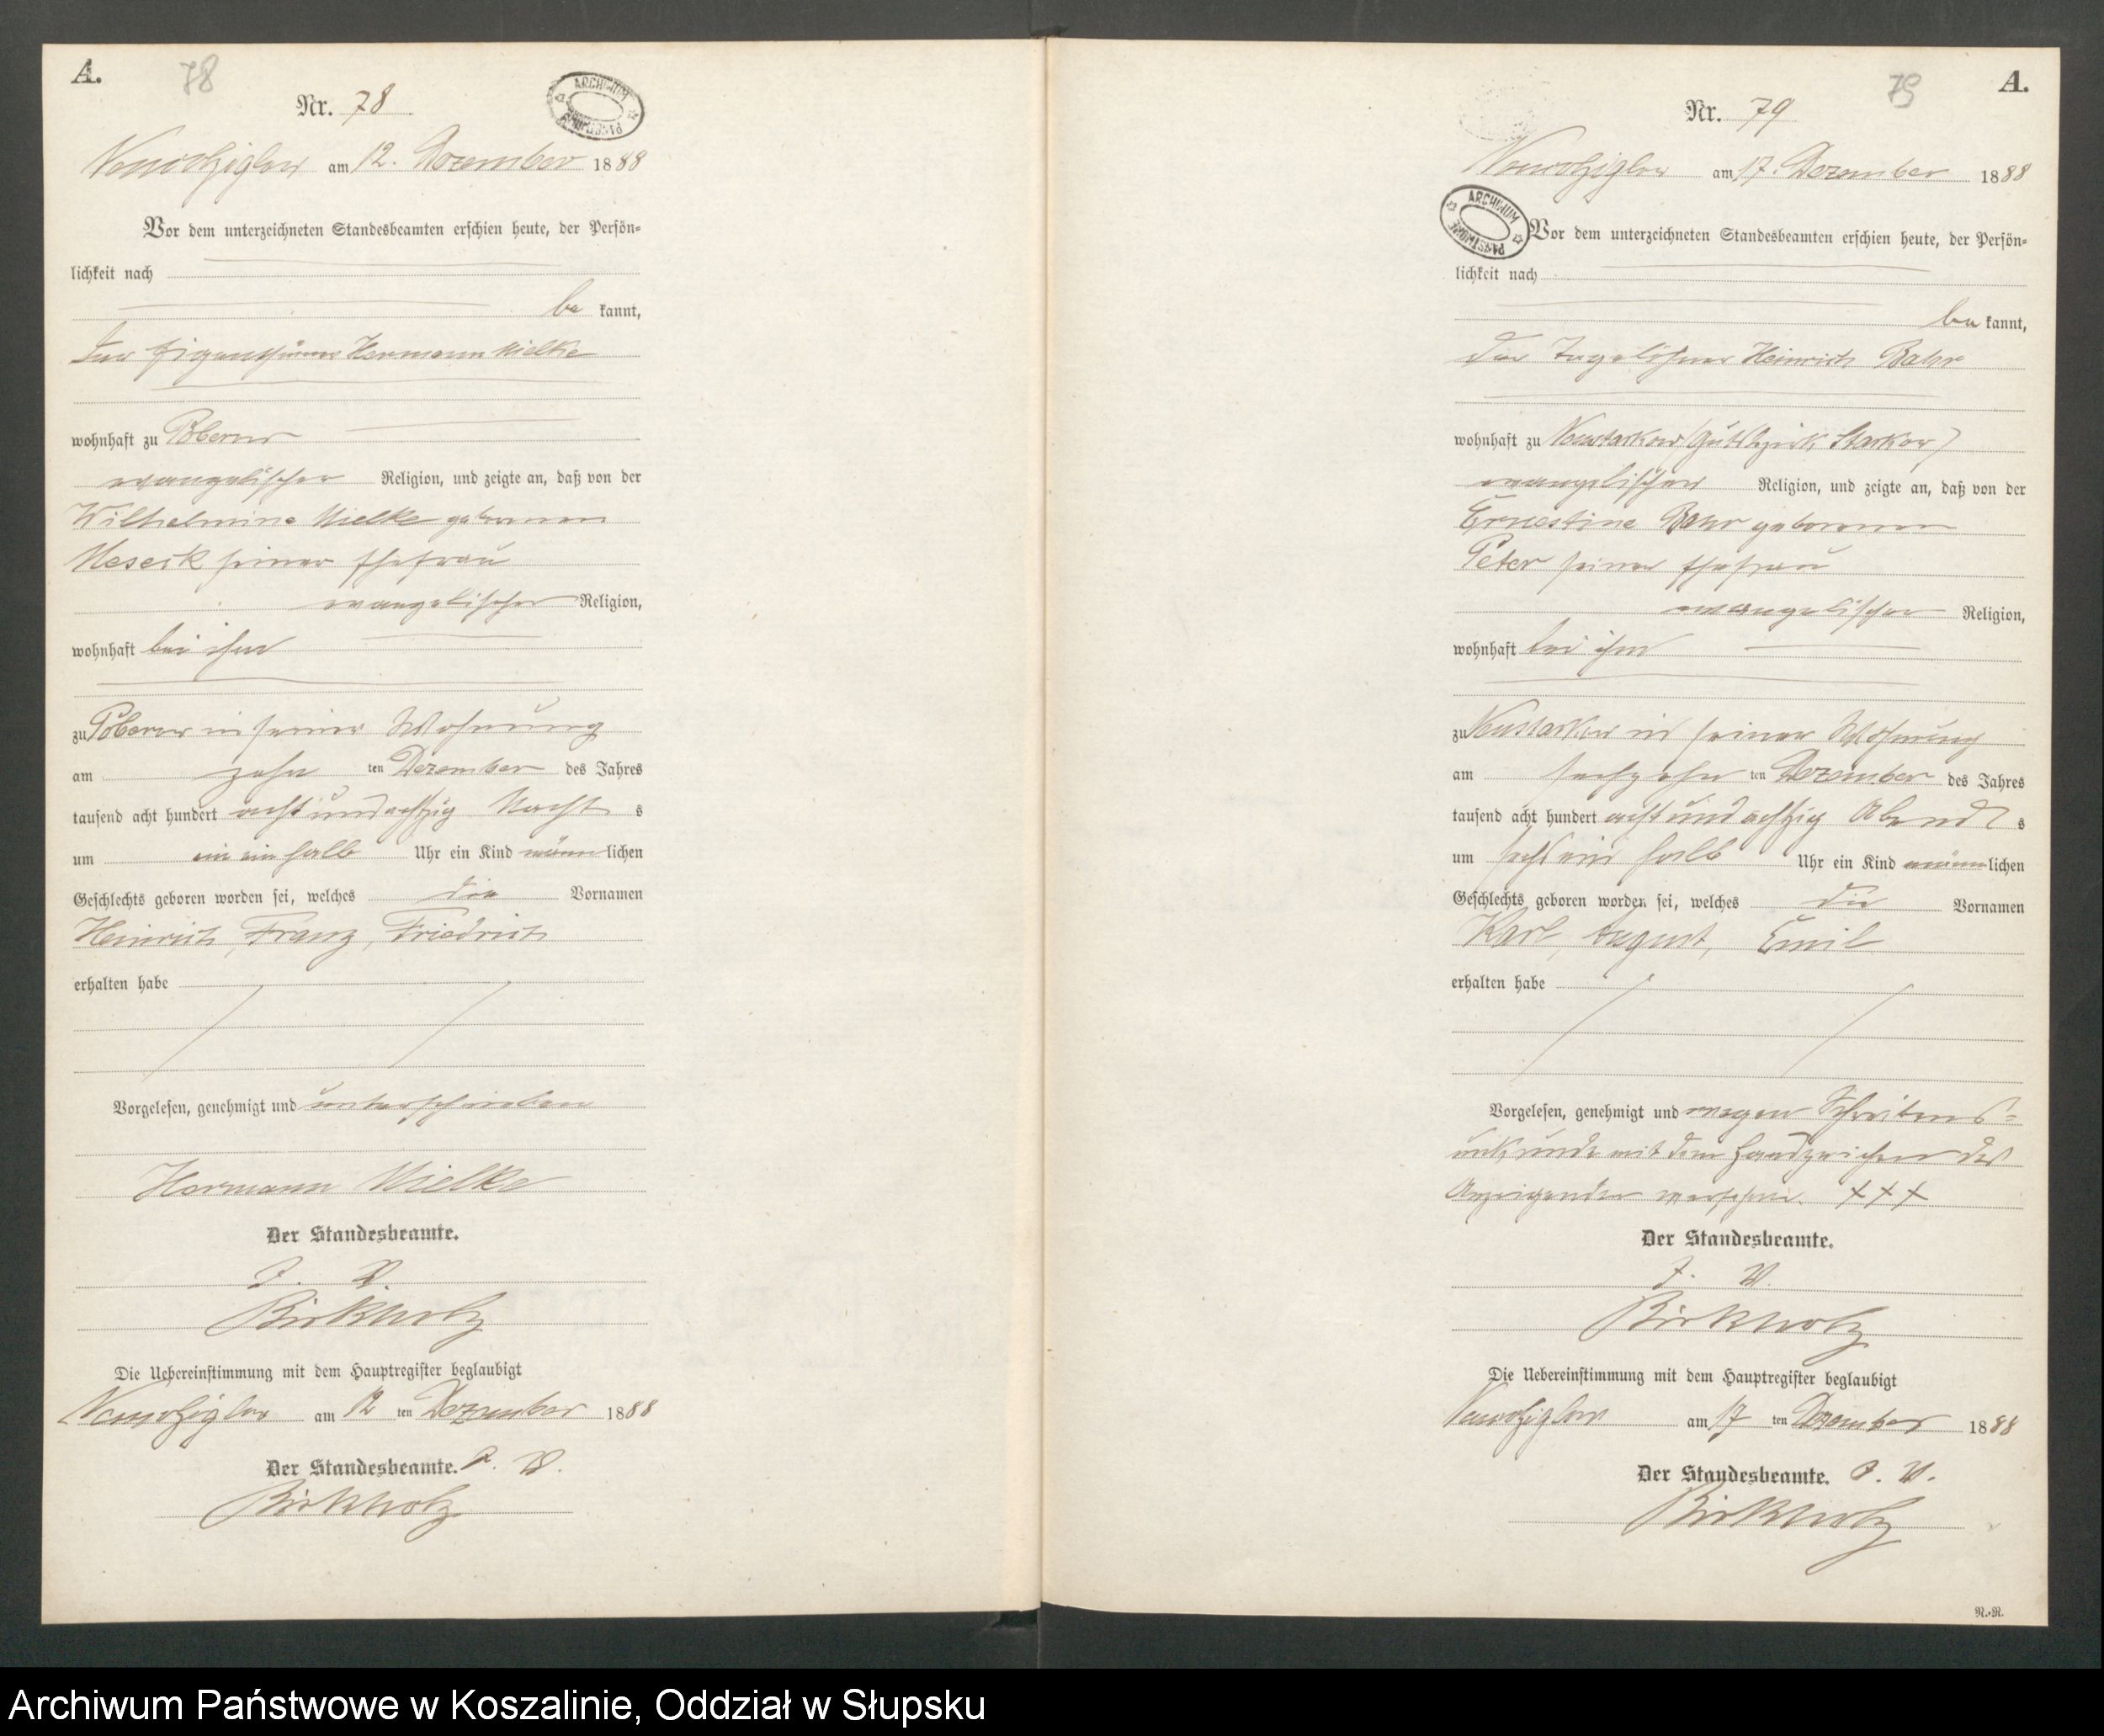 A.
78
Nr. 78
ARCHIWUM PAŃSTWOWE
am 12. Dezember 1888
Vor dem unterzeichneten Standesbeamten erschien heute, der Persön=
lichkeit nach
be kannt,
der Eigenthümer Hermann Mielke
wohnhaft zu Poberow
evangelischer Religion, und zeigte an, daß von der
Wilhelmine Mielke geborenen
Meseck seiner Ehefrau
evangelischer Religion,
wohnhaft bei ihm
zu Poberow in seiner Wohnung
am zehn ten Dezember des Jahres
tausend acht hundert acht und achtzig Nacht s
um ein ein halb Uhr ein Kind männlichen
Geschlechts geboren worden sei, welches die Vornamen
Heinrich, Franz, Friedrich
erhalten habe
Vorgelesen, genehmigt und unterschrieben
Hermann Mielke
Der Standesbeamte.
J. V.
Birkholz
Die Uebereinstimmung mit dem Hauptregister beglaubigt
am 12 ten Dezember 1888
Der Standesbeamte. J. V.
Birkholz
79
A.
Nr. 79
am 17. Dezember 1888
ARCHIWUM PAŃSTWOWE
Vor dem unterzeichneten Standesbeamten erschien heute, der Persön=
lichkeit nach
be kannt,
der Tagelöhner Heinrich Bahr
wohnhaft zu Neustarkow (Gutsbezirk Starkow)
evangelischer Religion, und zeigte an, daß von der
Ernestine Bahr geborenen
Peter seiner Ehefrau
evangelischer Religion,
wohnhaft bei ihm
zu Neustarkow in seiner Wohnung
am sechzehn ten Dezember des Jahres
tausend acht hundert acht und achtzig Abend s
um acht ein halb Uhr ein Kind männlichen
Geschlechts geboren worden sei, welches die Vornamen
Karl, August, Emil
erhalten habe
Vorgelesen, genehmigt und wegen Schreibens=
unkunde mit dem Handzeichen des
Anzeigenden versehen. +++
Der Standesbeamte.
J. V.
Birkholz
Die Uebereinstimmung mit dem Hauptregister beglaubigt
am 17 ten Dezember 1888
Der Standesbeamte. J. V.
Birkholz
N.-N.
Archiwum Państwowe w Koszalinie, Oddział w Słupsku